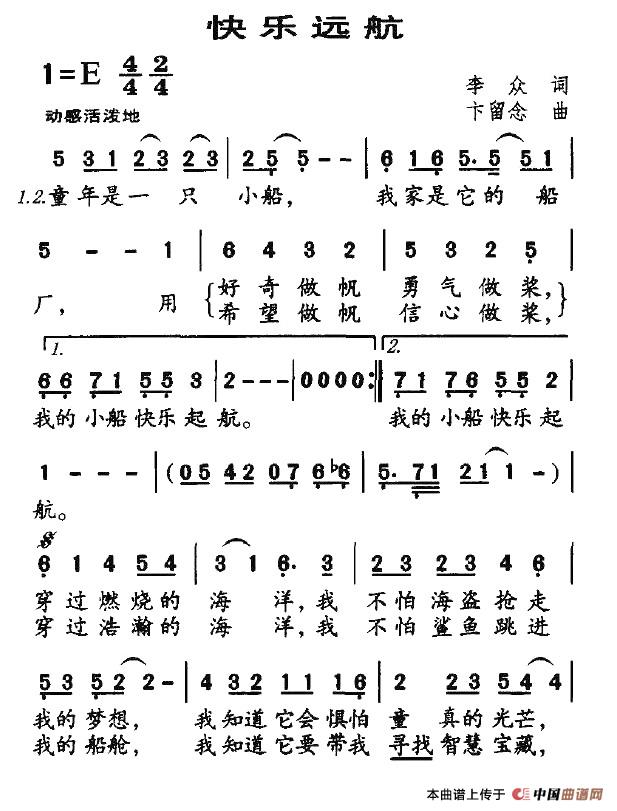 快乐远航
1=E 4/4 2/4
李众 词
动感活泼地
卞留念 曲
5 31 23 23 | 25 5 - - | 6 16 5. 5 51 |
1.2.童年是一只小船， 我家是它的船
5 - - 1 | 6 4 3 2 | 5 3 2 5 |
厂， 用 {好奇做帆 勇气做桨，
希望做帆 信心做桨，}
1. 2.
66 71 55 3 | 2 - - - | 0 0 0 0 :| 71 76 55 2 |
我的小船快乐起航。 我的小船快乐起
1 - - - | (05 42 07 6♭6 | 5. 71 21 1 -) |
航。
6 1 4 54 | 3 1 6. 3 | 2 23 4 6 |
穿过燃烧的海洋，我不怕海盗抢走
穿过浩瀚的海洋，我不怕鲨鱼跳进
53 52 2 - | 4 32 11 16 | 2 23 54 4 |
我的梦想， 我知道它会惧怕童真的光芒，
我的船舱， 我知道它要带我寻找智慧宝藏，
本曲谱上传于 中国曲谱网